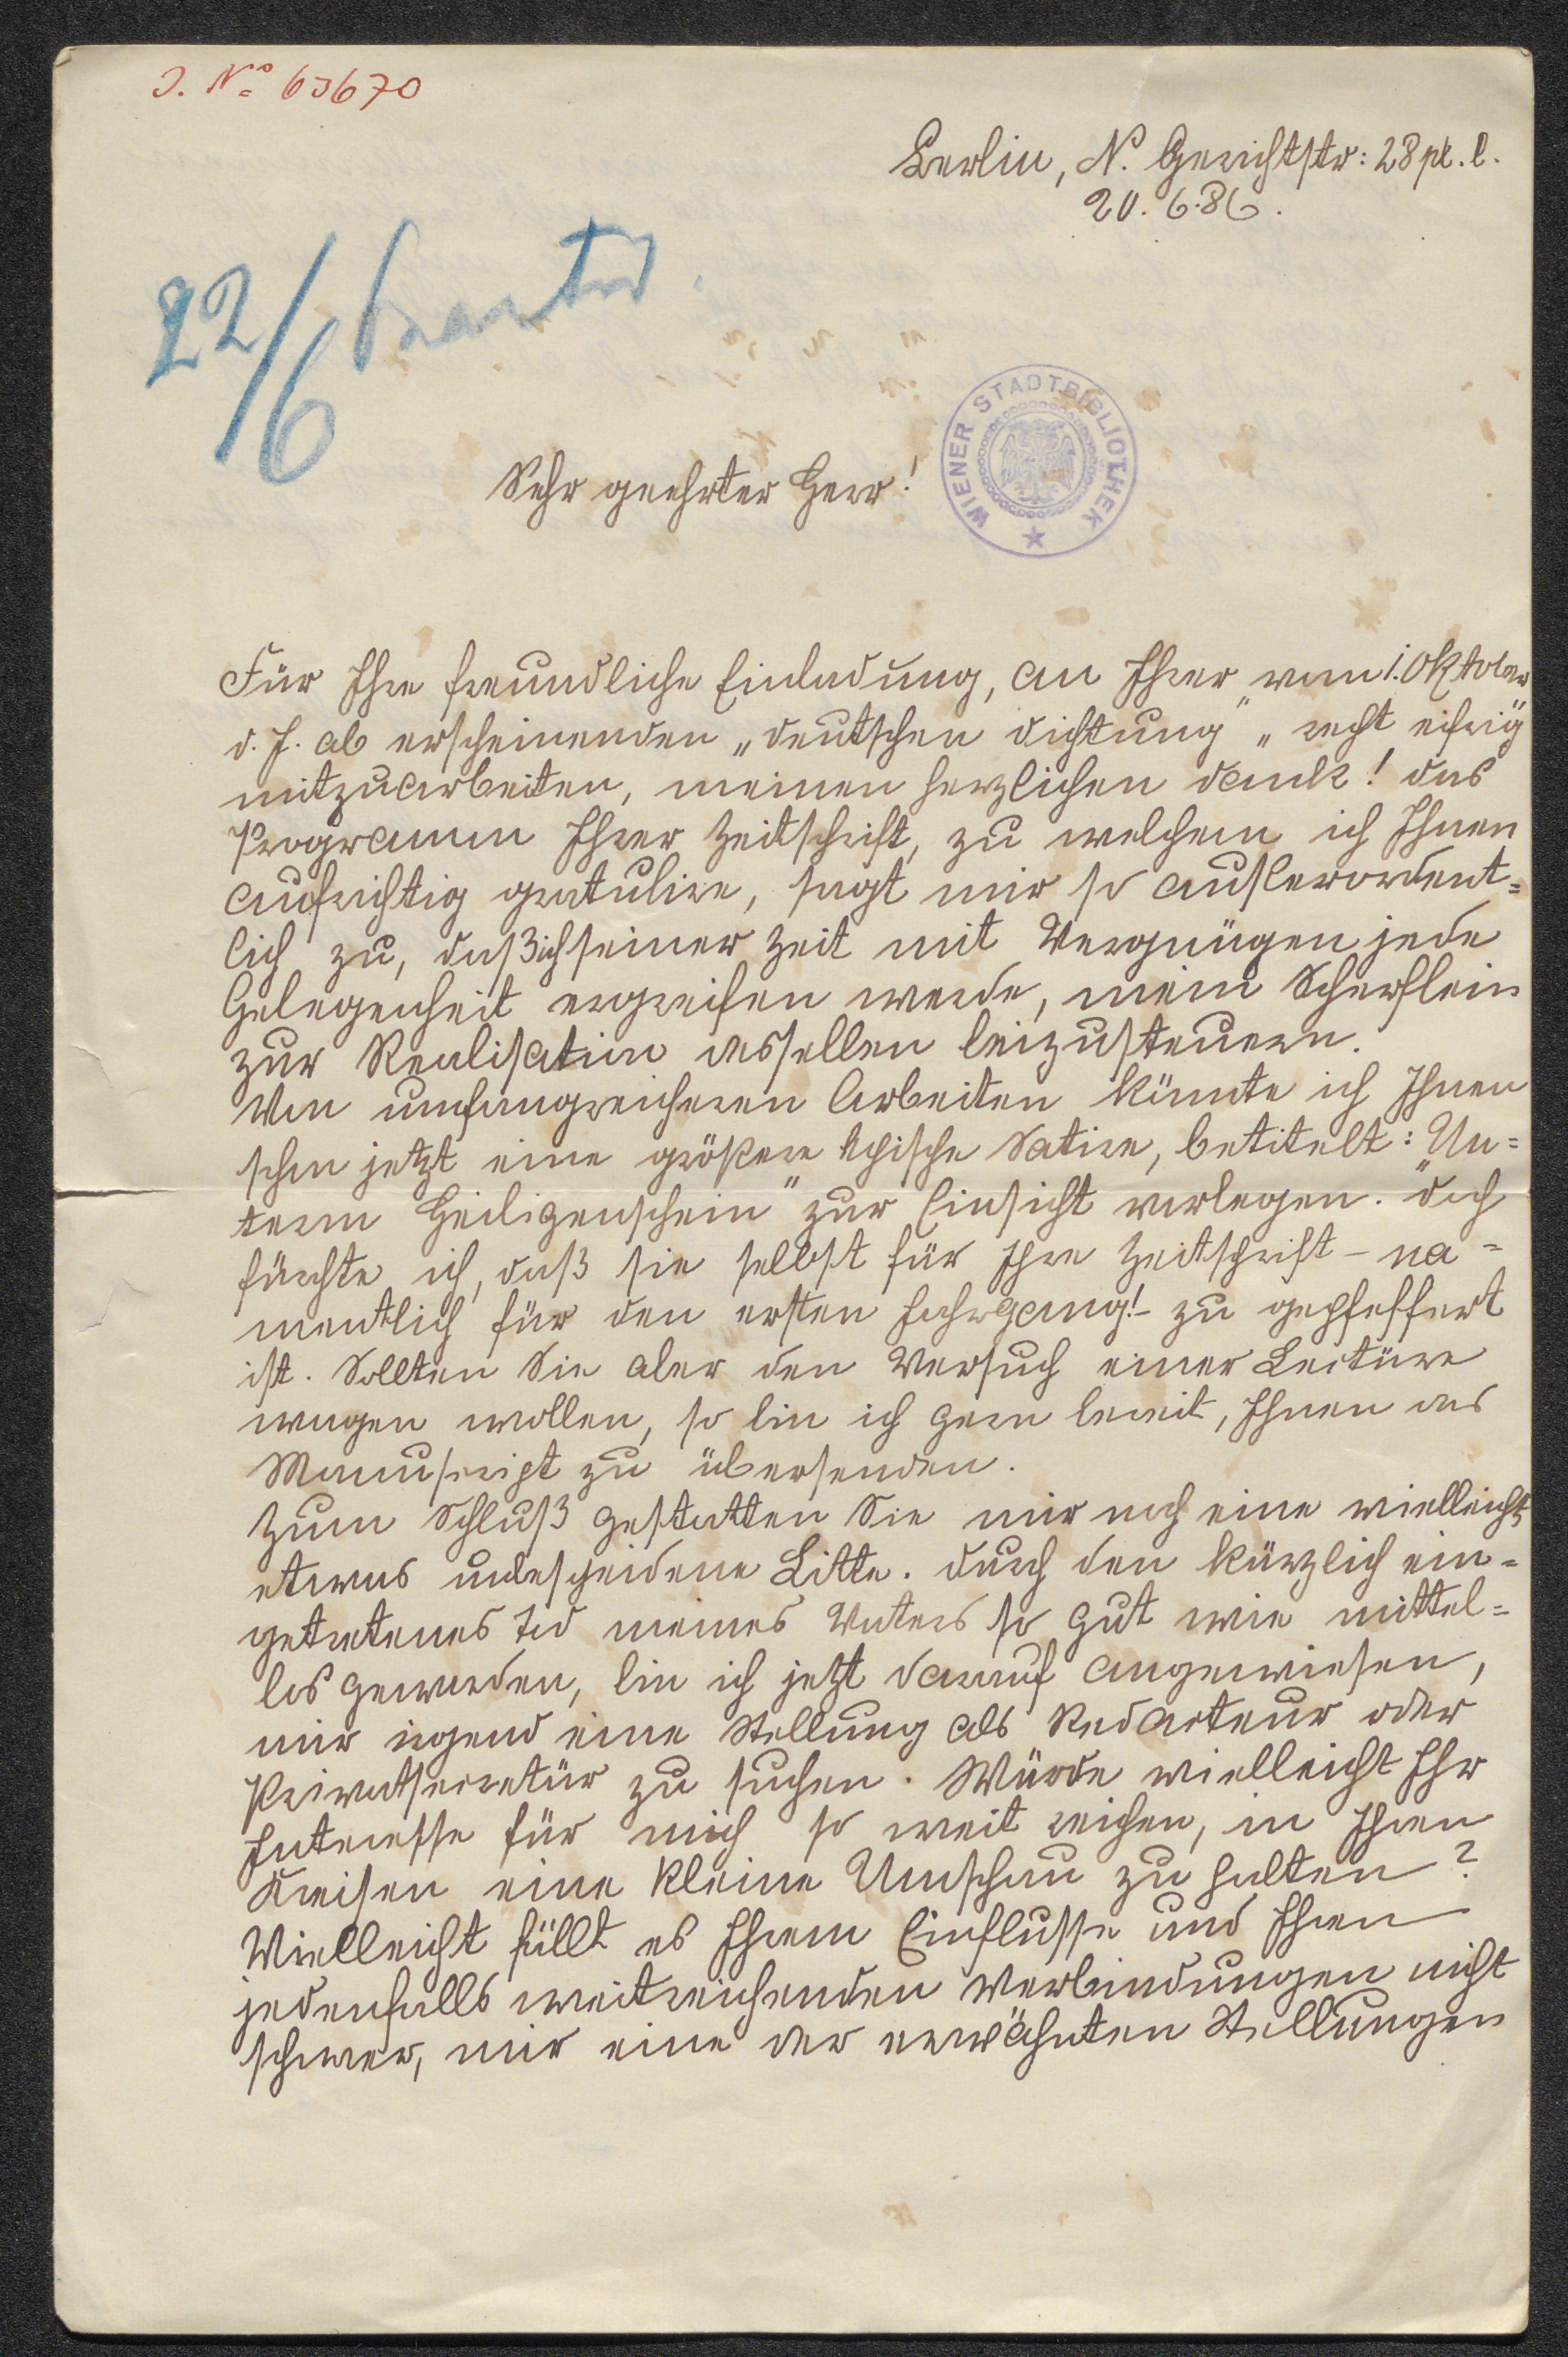 J. No 63670
Berlin, N. Gerichtstr: 28 pt. l.
20. 6. 86.
22/6 beantw.
WIENER STADTBIBLIOTHEK
Sehr geehrter Herr!
Für Ihre freundliche Einladung, an Ihrer vom 1. Oktober
d. J. ab erscheinenden „deutschen Dichtung" recht eifrig
mitzuarbeiten, meinen herzlichen Dank! Das
Programm Ihrer Zeitschrift, zu welchem ich Ihnen
aufrichtig gratulire, sagt mir so außerordent=
lich zu, daß ich seiner Zeit mit Vergnügen jede
Gelegenheit ergreifen werde, mein Scherflein
zur Realisation desselben beizusteuern.
Von umfangreicheren Arbeiten könnte ich Ihnen
schon jetzt eine größere epische Satire, betitelt: „Un=
term Heiligenschein" zur Einsicht vorlegen. Doch
fürchte ich, daß sie selbst für Ihre Zeitschrift – na=
mentlich für den ersten Jahrgang! – zu gepfeffert
ist. Sollten Sie aber den Versuch einer Lectüre
wagen wollen, so bin ich gern bereit, Ihnen das
Manuscript zu übersenden.
Zum Schluß gestatten Sie mir noch eine vielleicht
etwas unbescheidene Bitte. Durch den kürzlich ein=
getretenes Tod meines Vaters so gut wie mittel=
los geworden, bin ich jetzt darauf angewiesen,
mir irgend eine Stellung als Redacteur oder
Privatsecretär zu suchen. Würde vielleicht Ihr
Interesse für mich so weit reichen, in Ihren
Kreisen eine kleine Umschau zu halten?
Vielleicht fällt es Ihrem Einflusse und Ihren
jedenfalls weitreichenden Verbindungen nicht
schwer, mir eine der erwähnten Stellungen